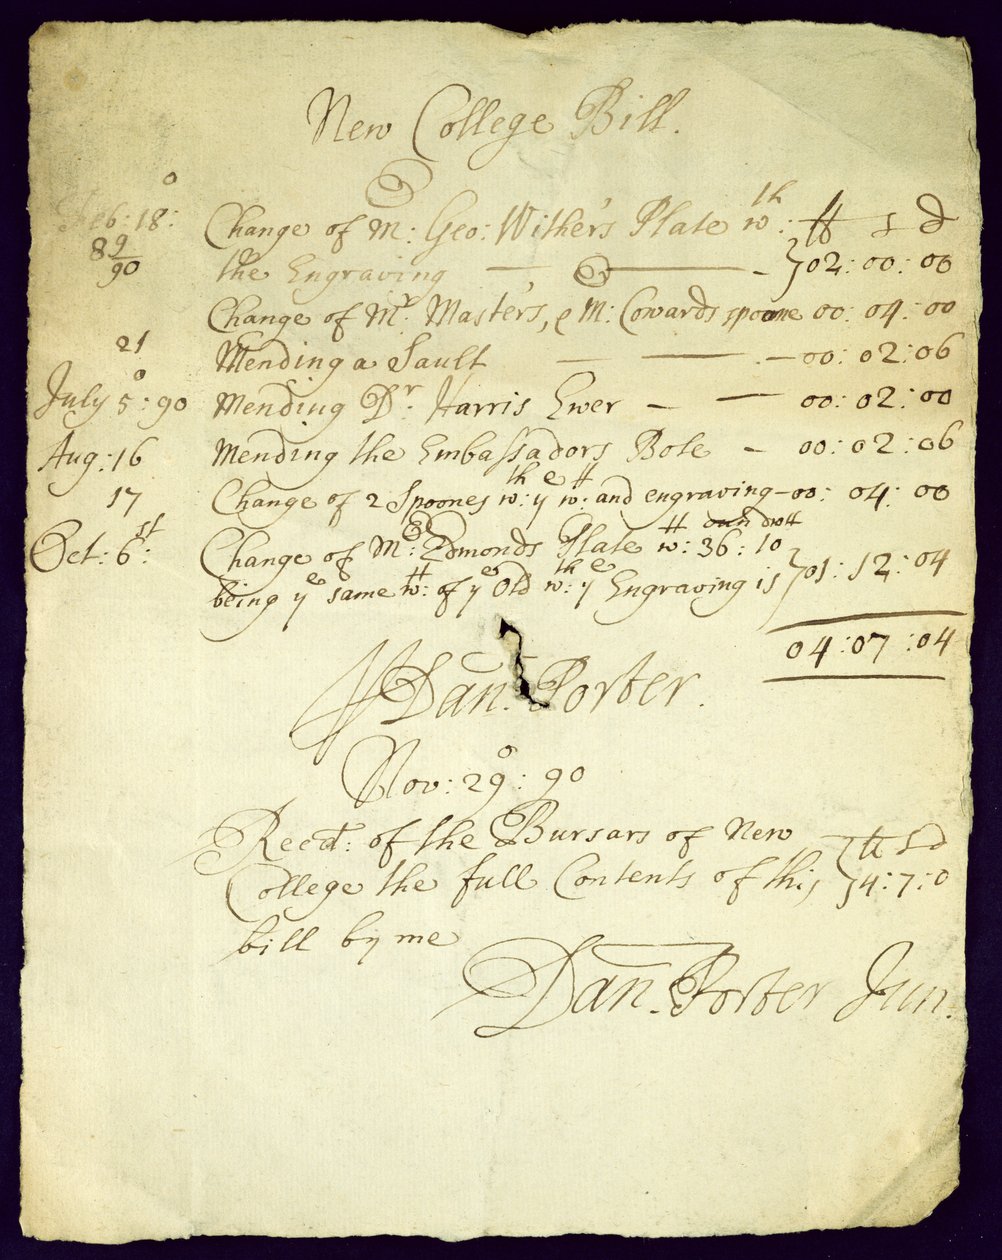 New College Bill.
Feb: 18:° Change of Mr: Geo: Wither's Plate wth: ₶ s d
89/90 the Engraving — — — } 02: 00: 00
Change of Mr Master's, & Mr: Cowards spoone 00: 04: 00
21 Mending a Sault — — — 00: 02: 06
July 5°: 90 Mending Dr. Harris Ewer — — 00: 02: 00
Aug: 16 Mending the Embassadors Bole — 00: 02: 06
17 Change of 2 Spoones wth: ye wtt: and engraving — 00: 04: 00
Oct: 6st: Change of Mr: Edmonds Plate wtt: 36 oun: 10 dwtt
being ye same wtt: of ye Old wth: ye Engraving is } 01: 12: 04
04: 07: 04
Dan. Porter.
Nov: 29°: 90
Recd: of the Bursars of New ₶ s d
College the full Contents of this } 4: 7: 0
bill by me
Dan. Porter Jun: